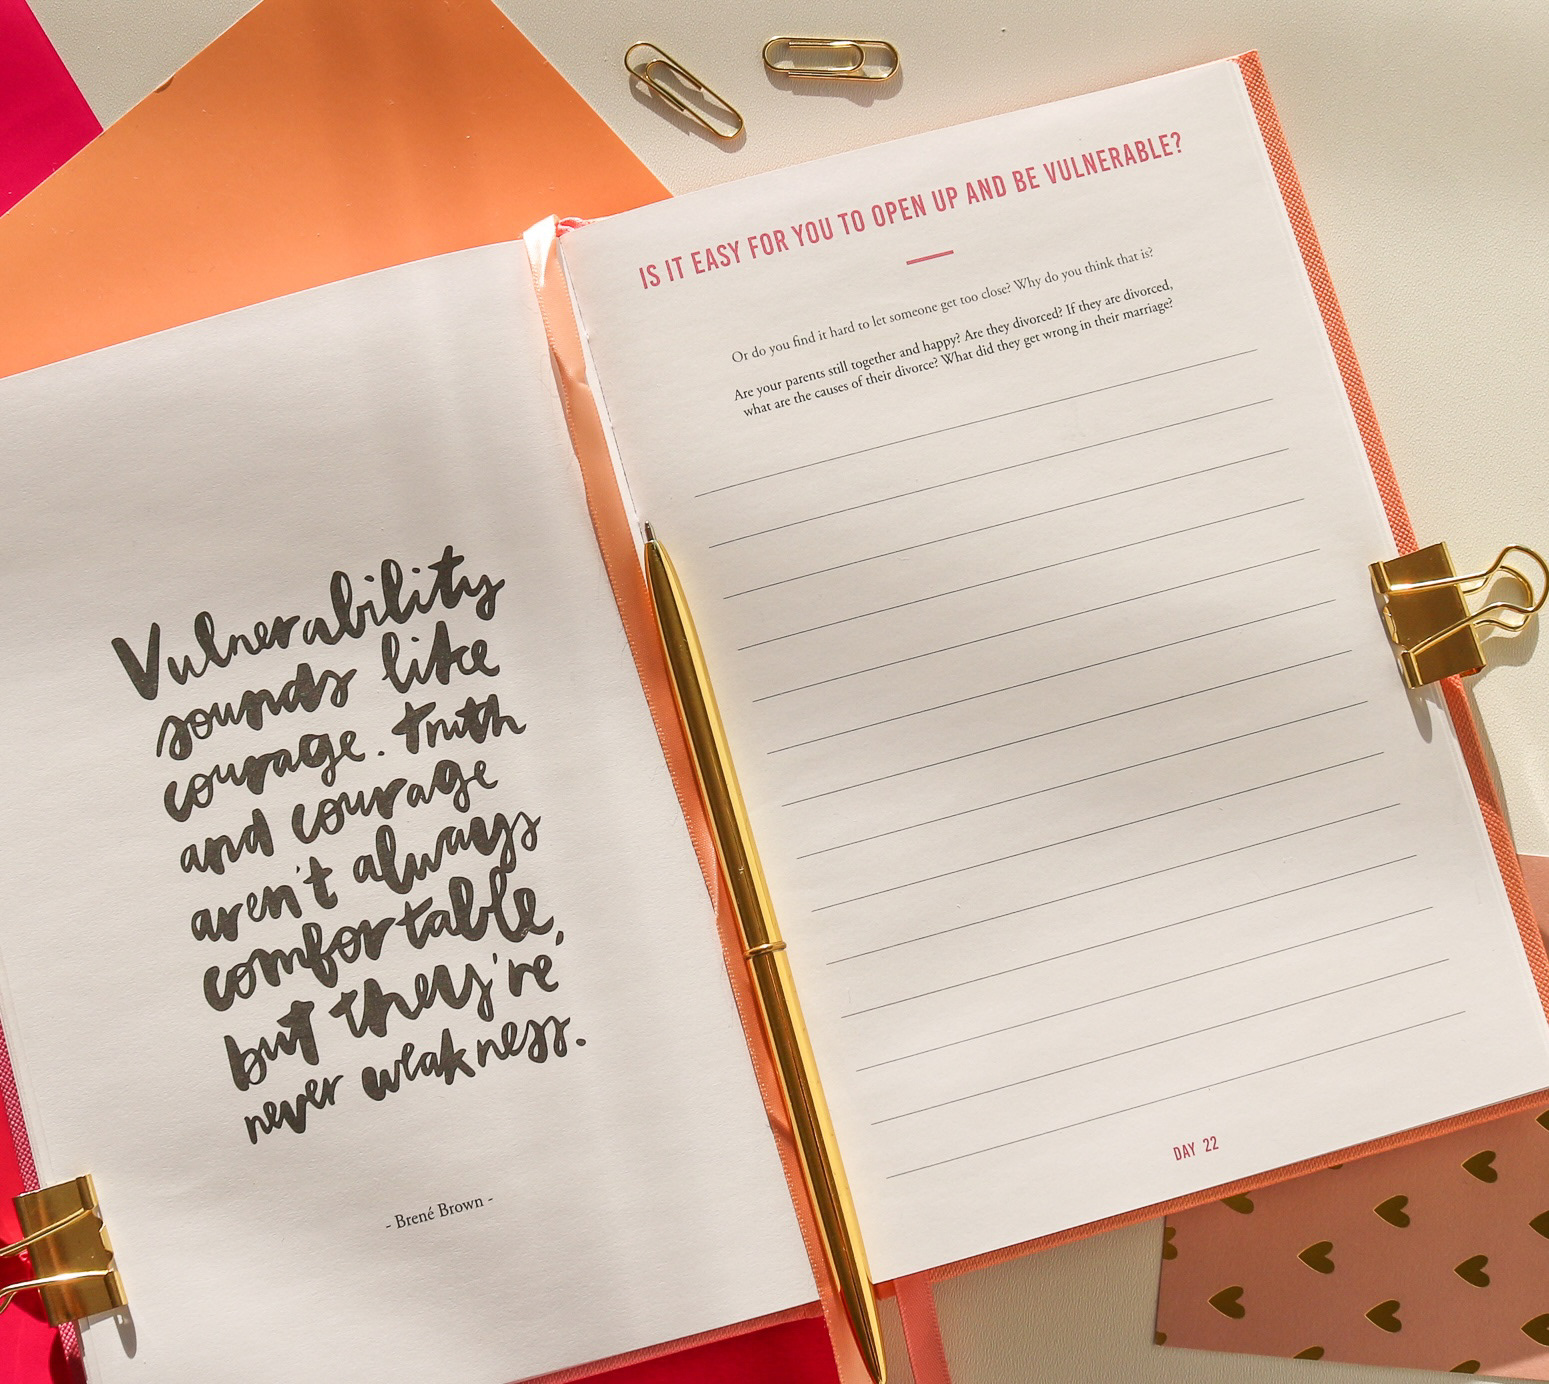 Vulnerability
sounds like
courage. Truth
and courage
aren't always
comfortable,
but they're
never weakness.
- Brené Brown -
IS IT EASY FOR YOU TO OPEN UP AND BE VULNERABLE?
Or do you find it hard to let someone get too close? Why do you think that is?
Are your parents still together and happy? Are they divorced? If they are divorced,
what are the causes of their divorce? What did they get wrong in their marriage?
DAY 22